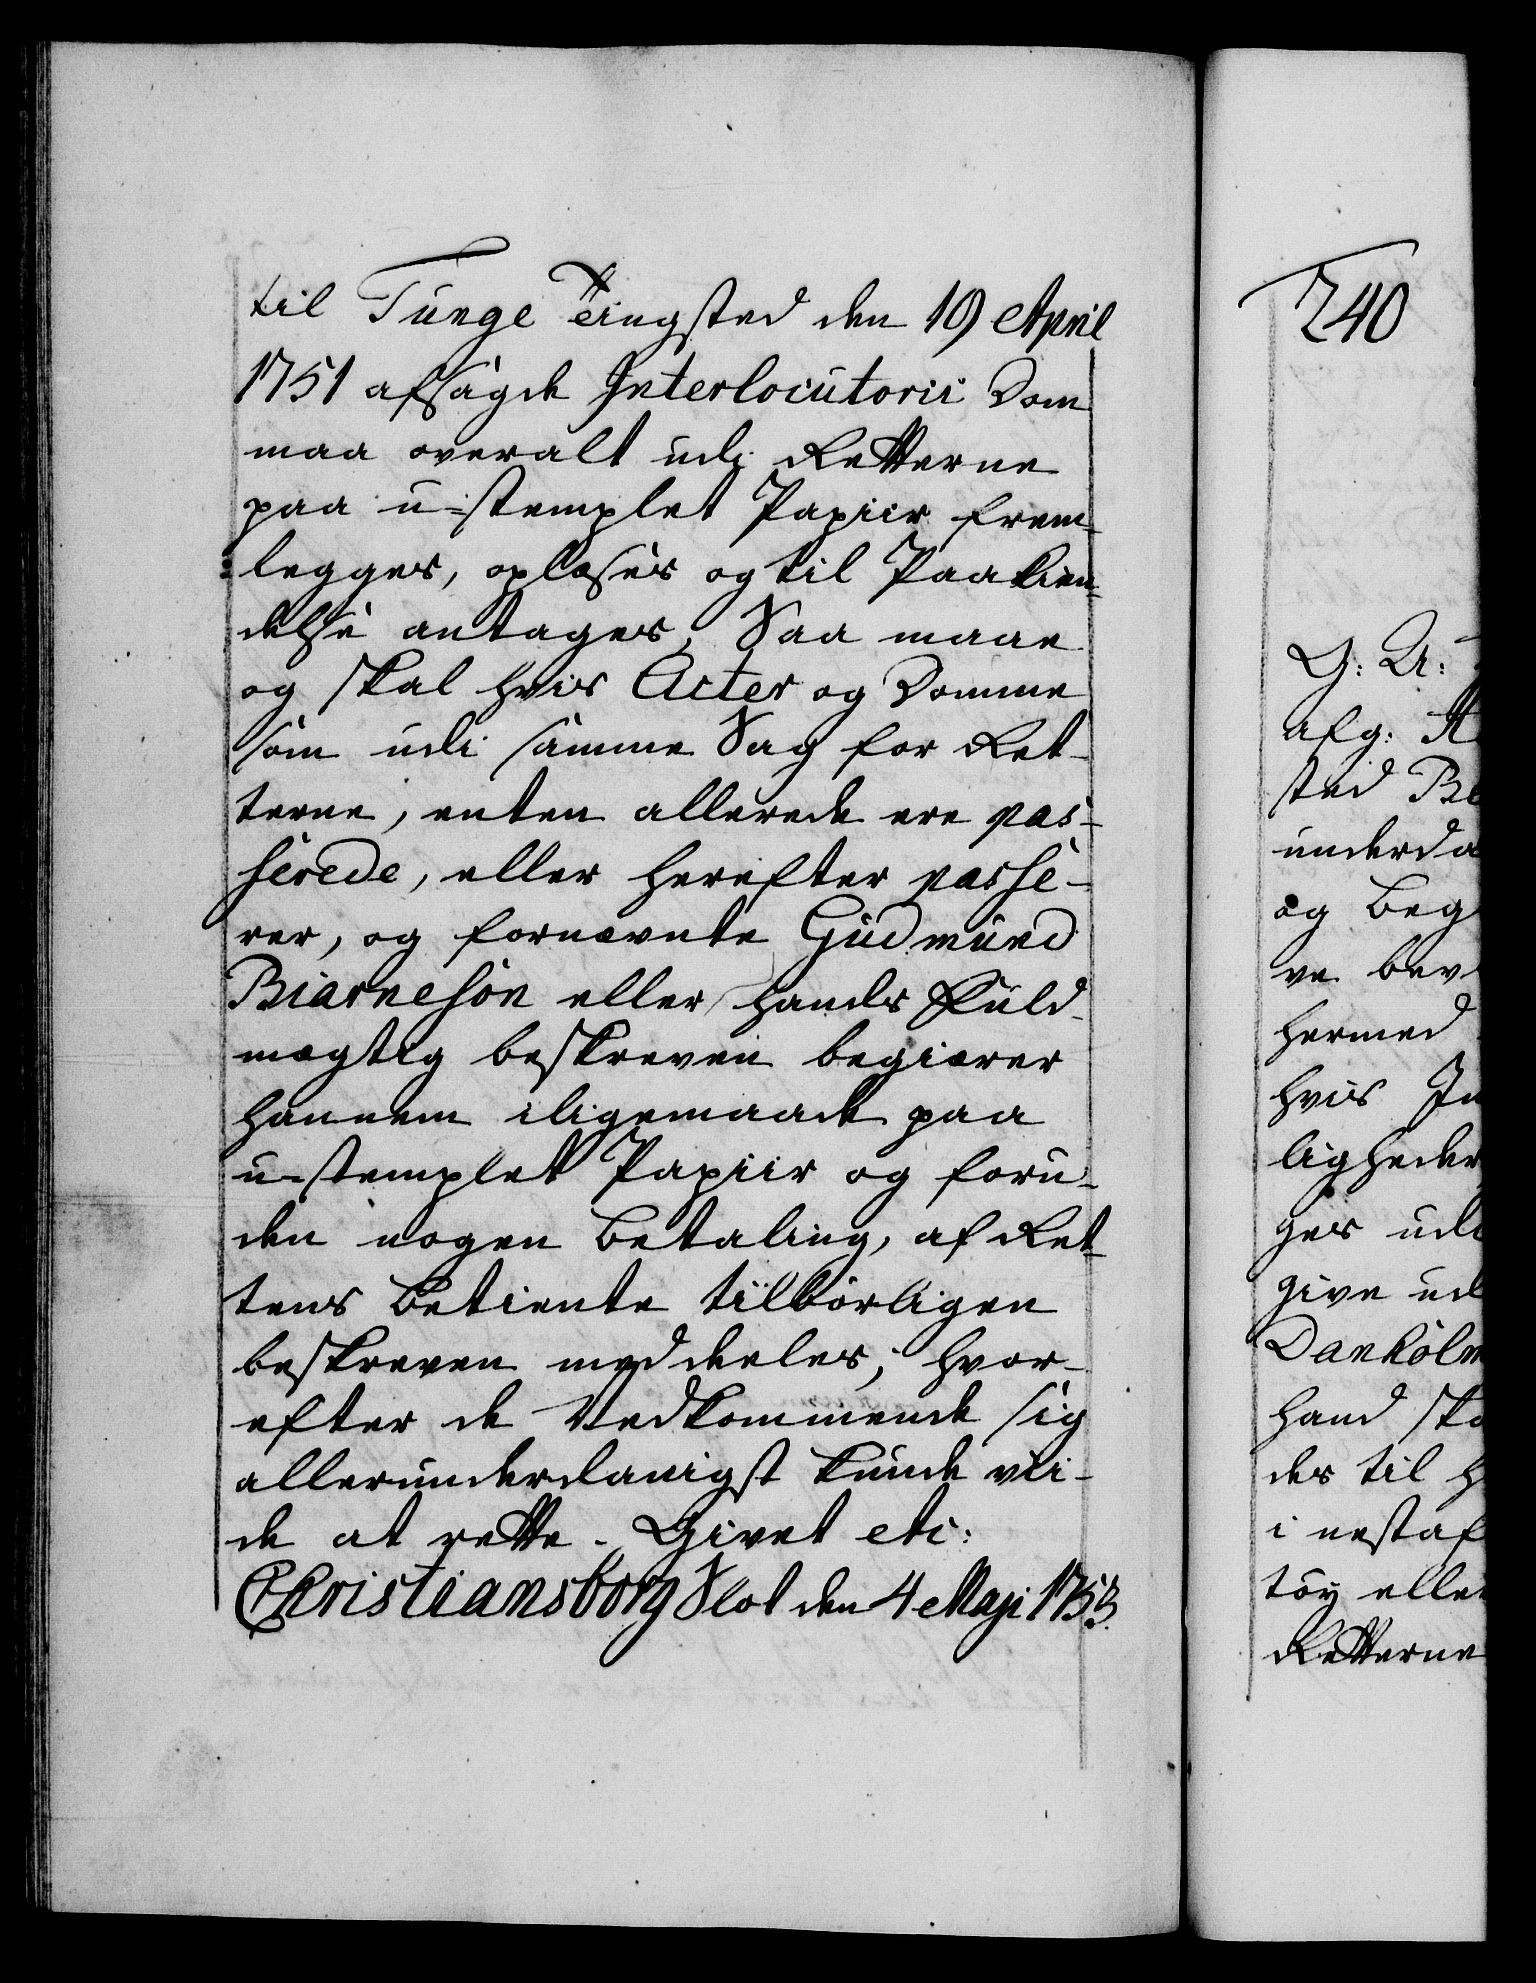 til Tunge Tingsted den 19 April
1751 afsagde Interlocutorii Dom
maa overalt udi Retterne
paa u-stemplet Papiir frem-
legges, oplæses og til Paakien-
delse antages, Saa maae
og skal hvis Acter og Domme
som udi samme Sag for Ret-
terne, enten allerede ere pas-
serede, eller herefter passe-
rer, og fornævnte Gudmund
Biarnesøn eller hands Fuld-
mægtig beskreven begiærer
hannem iligemaade paa
u-stemplet Papiir og foru-
den nogen Betaling, af Ret-
tens Betiente tilbørligen
beskreven meddeeles; hvor-
efter de Vedkommende sig
allerunderdanigst kunde vii-
de at rette. Givet etc:
Christiansborg Slot den 4 Maji 1753.
240
G: A:
afg:
sted
underda
og Beg
ve bev
hermed
hvis In
ligheder
ges udi
give ud
Dankølm
hand ska
des til h
i nestaf
tøy eller
Retterne